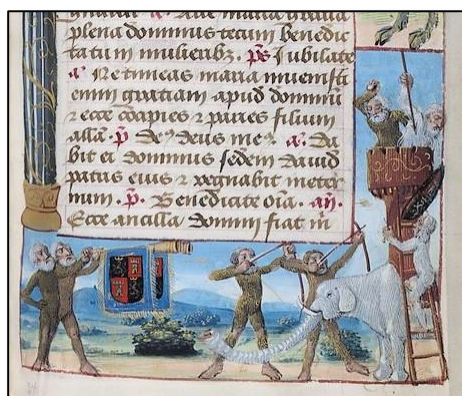 Aue maria gratia
plena dominus tecum benedic
ta tu in mulieribz. ps Jubilate
a. Ne timeas maria inuenisti
enim gratiam apud dominū
⁊ ecce cōcipies ⁊ paries filium
alla. p. De9 deus me9. a. Da
bit ei dominus sedem dauid
patris eius ⁊ regnabit in eter
num. p. Benedicite oīa. añ.
Ecce ancilla domini fiat m̄